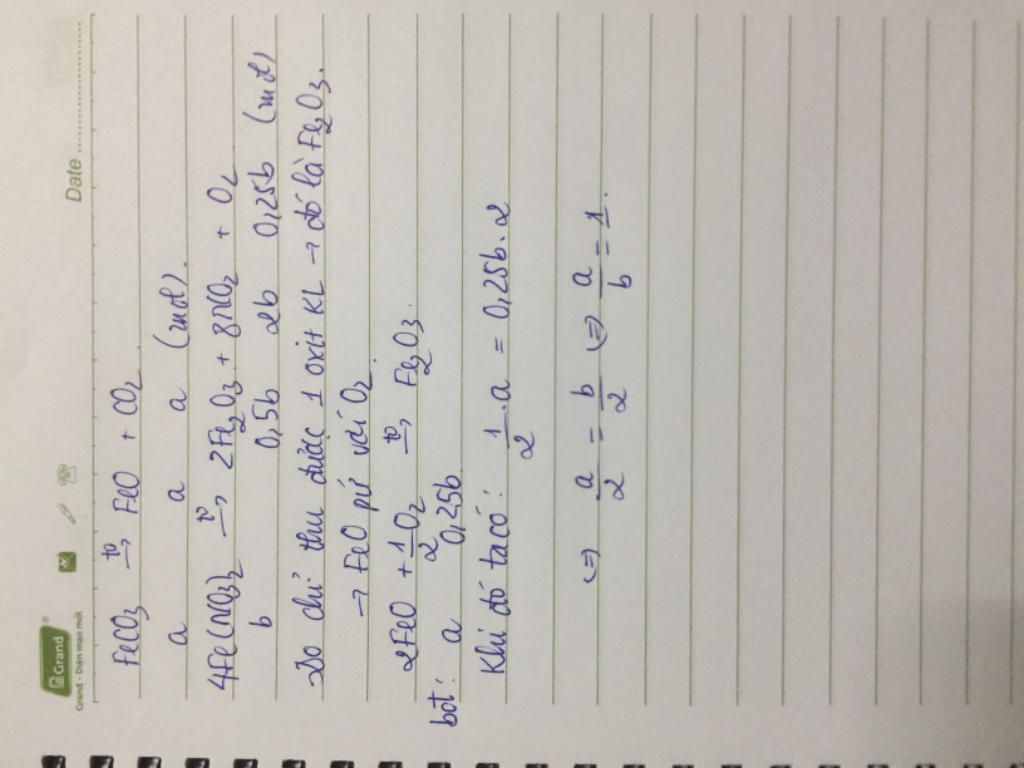 Grand
Grand - Diện mạo mới
Date ....................
FeCO3 t°→ FeO + CO2
a a a (mol).
4Fe(NO3)2 t°→ 2Fe2O3 + 8NO2 + O2
b 0,5b 2b 0,25b (mol)
Do chỉ thu được 1 oxit KL → đó là Fe2O3.
→ FeO pứ với O2.
2FeO + 1/2 O2 t°→ Fe2O3.
bđ: a 0,25b
Khi đó ta có: 1/2 . a = 0,25b. 2
(=) a/2 = b/2 (=) a/b = 1.